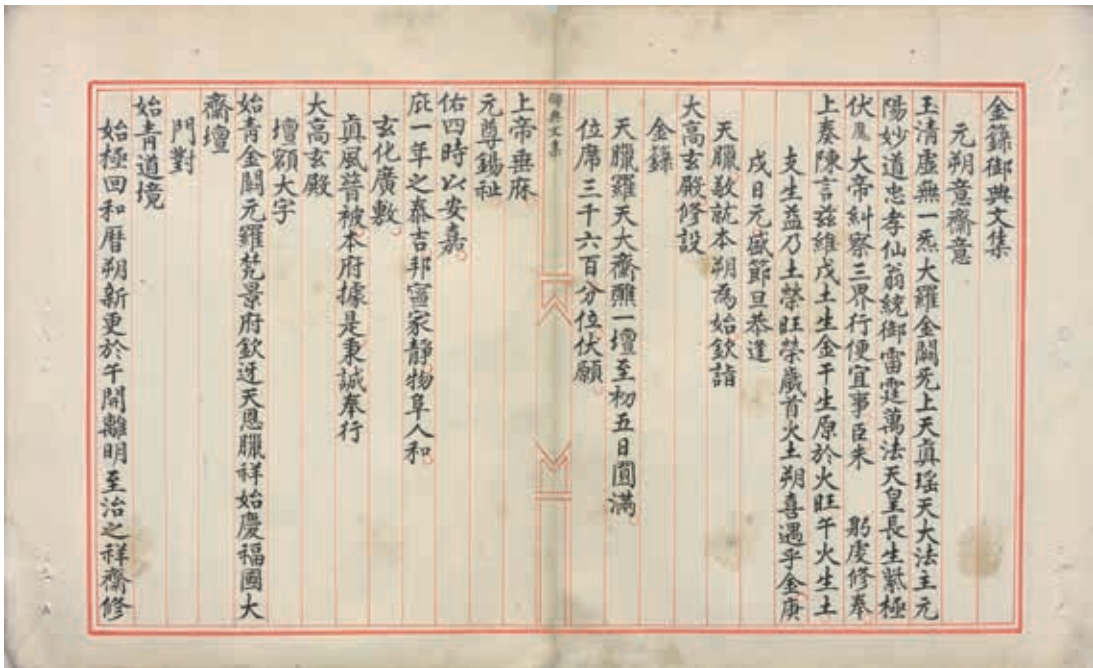 金籙御典文集
元朔意齋意
玉清虛無一炁大羅金闕旡上天真瑤天大法主元
陽妙道忠孝仙翁統御雷霆萬法天皇長生紫極
伏魔大帝糾察三界行便宜事臣朱 躬虔修奉
上奏陳言茲維戊土生金干生原於火旺午火生土
支生益乃土榮旺榮歲首火土朔喜遇乎金庚
戊日元盛節旦恭逢
天臘敬就本朔為始欽詣
大高玄殿修設
金籙
天臘羅天大齋醮一壇至初五日圓滿
位席三千六百分位伏願
御典文集
上帝垂庥
元尊錫祉
佑四時以安嘉
庇一年之泰吉邦寧家靜物阜人和
玄化廣敷
眞風普被本府據是秉誠奉行
大高玄殿
壇額大字
始青金闕元羅梵景府欽迓天恩臘祥始慶福國大
齋壇
門對
始青道境
始極回和曆朔新更於午開離明至治之祥齋修